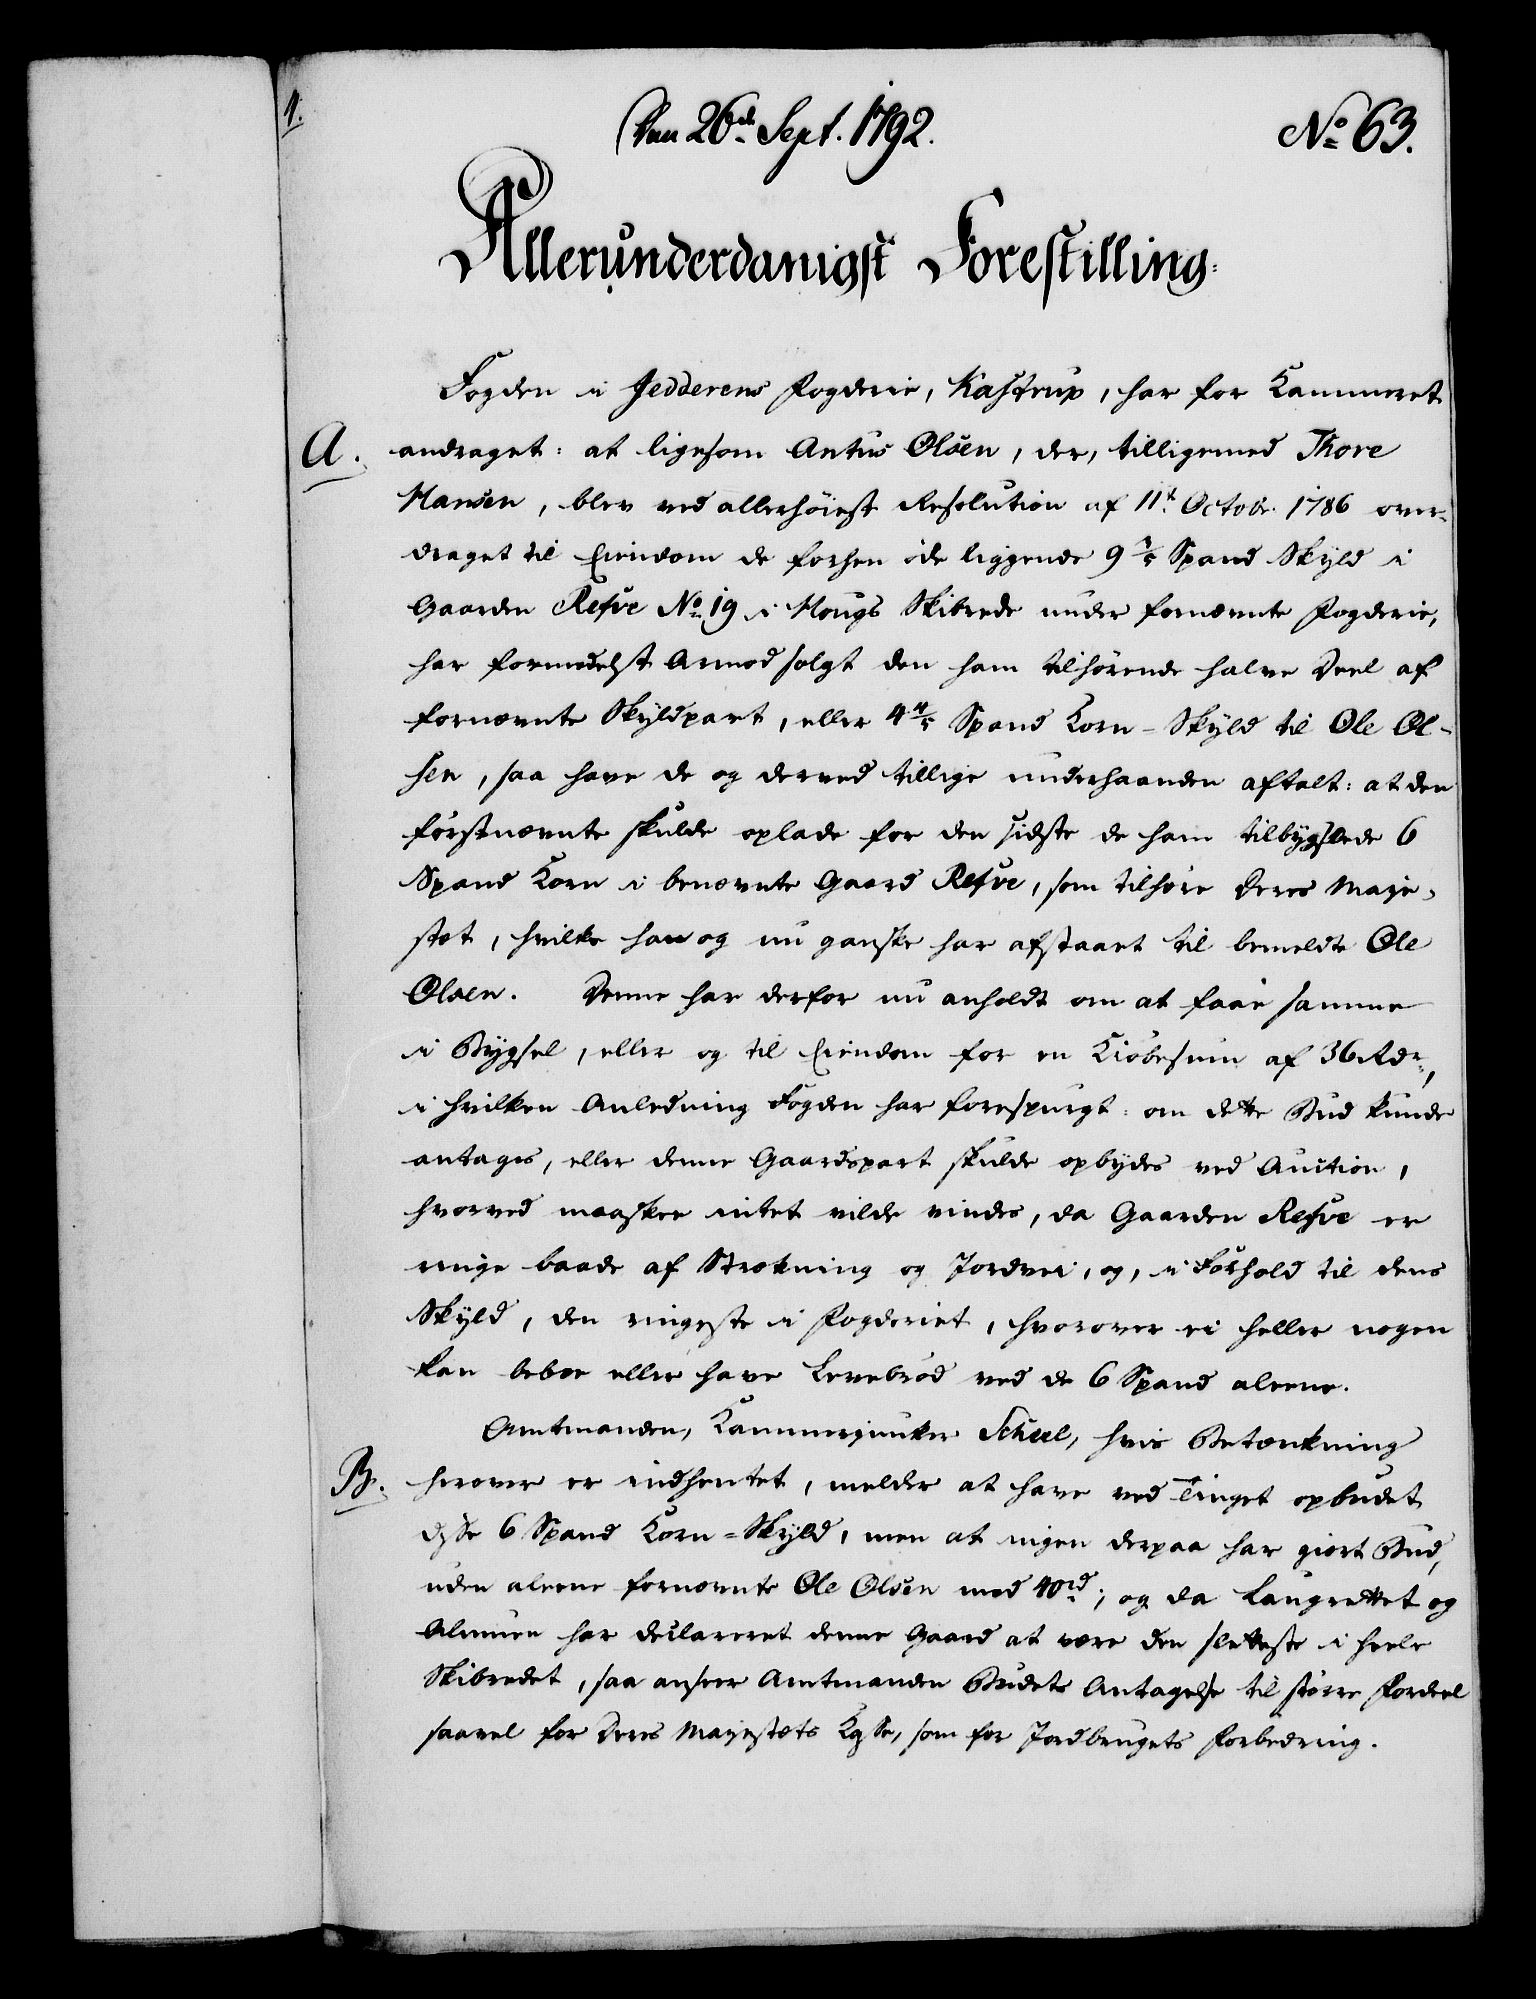 1.
Den 26de Sept. 1792.
No 63.
Allerunderdanigst Forestilling.
Fogden i Jedderens Fogderie, Kastrup, har for Kammeret
A.
andraget: at ligesom Antus Olsen, der, tilligemed Thore
Hansen, blev ved allerhöieste Resolution af 11te Octobr. 1786 over-
draget til Eiendom de forhen öde liggende 9 3/5 Spand Skyld i
Gaarden Refve No 19 i Hougs Skibrede under fornevnte Fogderie,
har formedelst Armod solgt den ham tilhörende halve Deel af
fornevnte Skyldpart, eller 4 4/5 Spand Korn-Skyld til Ole Ol-
sen, saa have de og derved tillige underhaanden aftalt: at den
förstnevnte skulde oplade for den sidste de ham tilbygslede 6
Spand Korn i benevnte Gaard Refve, som tilhöre Deres Maje-
stet, hvilke han og nu ganske har afstaaet til bemeldte Ole
Olsen. Denne har derfor nu anholdt om at faae samme
i Bygsel, eller og til Eiendom for en Kiöbesum af 36 Rdr,
i hvilken Anledning Fogden har forespurgt: om dette Bud kunde
antages, eller denne Gaardspart skulde opbydes ved Auction,
hvorved maaskee intet vilde vindes, da Gaarden Refve er
ringe baade af Strekning og Jordvei, og, i Forhold til dens
Skyld, den ringeste i Fogderiet, hvorover ei heller nogen
kan beboe eller have Levebröd ved de 6 Spand aleene.
Amtmanden, Kammerjunker Scheel, hvis Betenkning
B.
herover er indhentet, melder at have ved Tinget opbudet
disse 6 Spand Korn-Skyld, men at ingen derpaa har giort Bud,
uden aleene fornevnte Ole Olsen med 40 rd; og da Laugrettet og
Almuen har declareret denne Gaard at vere den sletteste i heele
Skibredet, saa anseer Amtmanden Budets Antagelse til större Fordeel
saavel for Deres Majestets Kasse, som for Jordbrugets Forbedring.